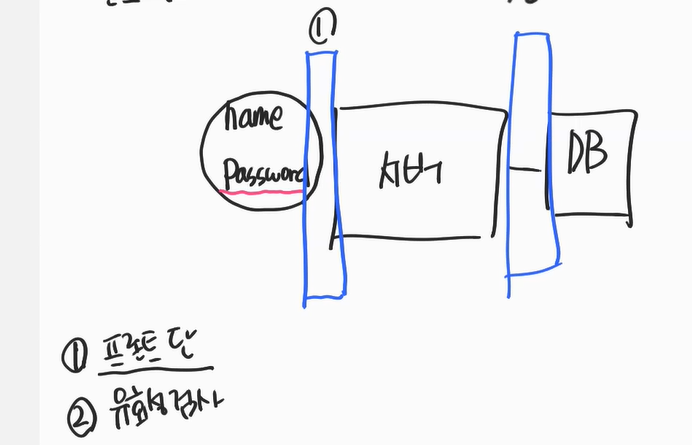 ①
name
Password
서버
DB
① 프론트 단
② 유효성 검사